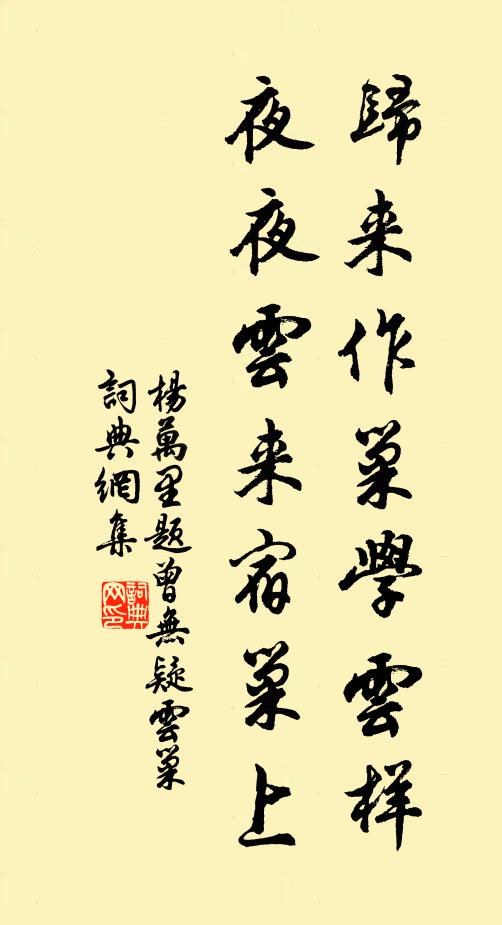 歸来作巢學雲样
夜夜雲来宿巢上
楊萬里題曾無疑雲巢
詞典網集
詞典
网印